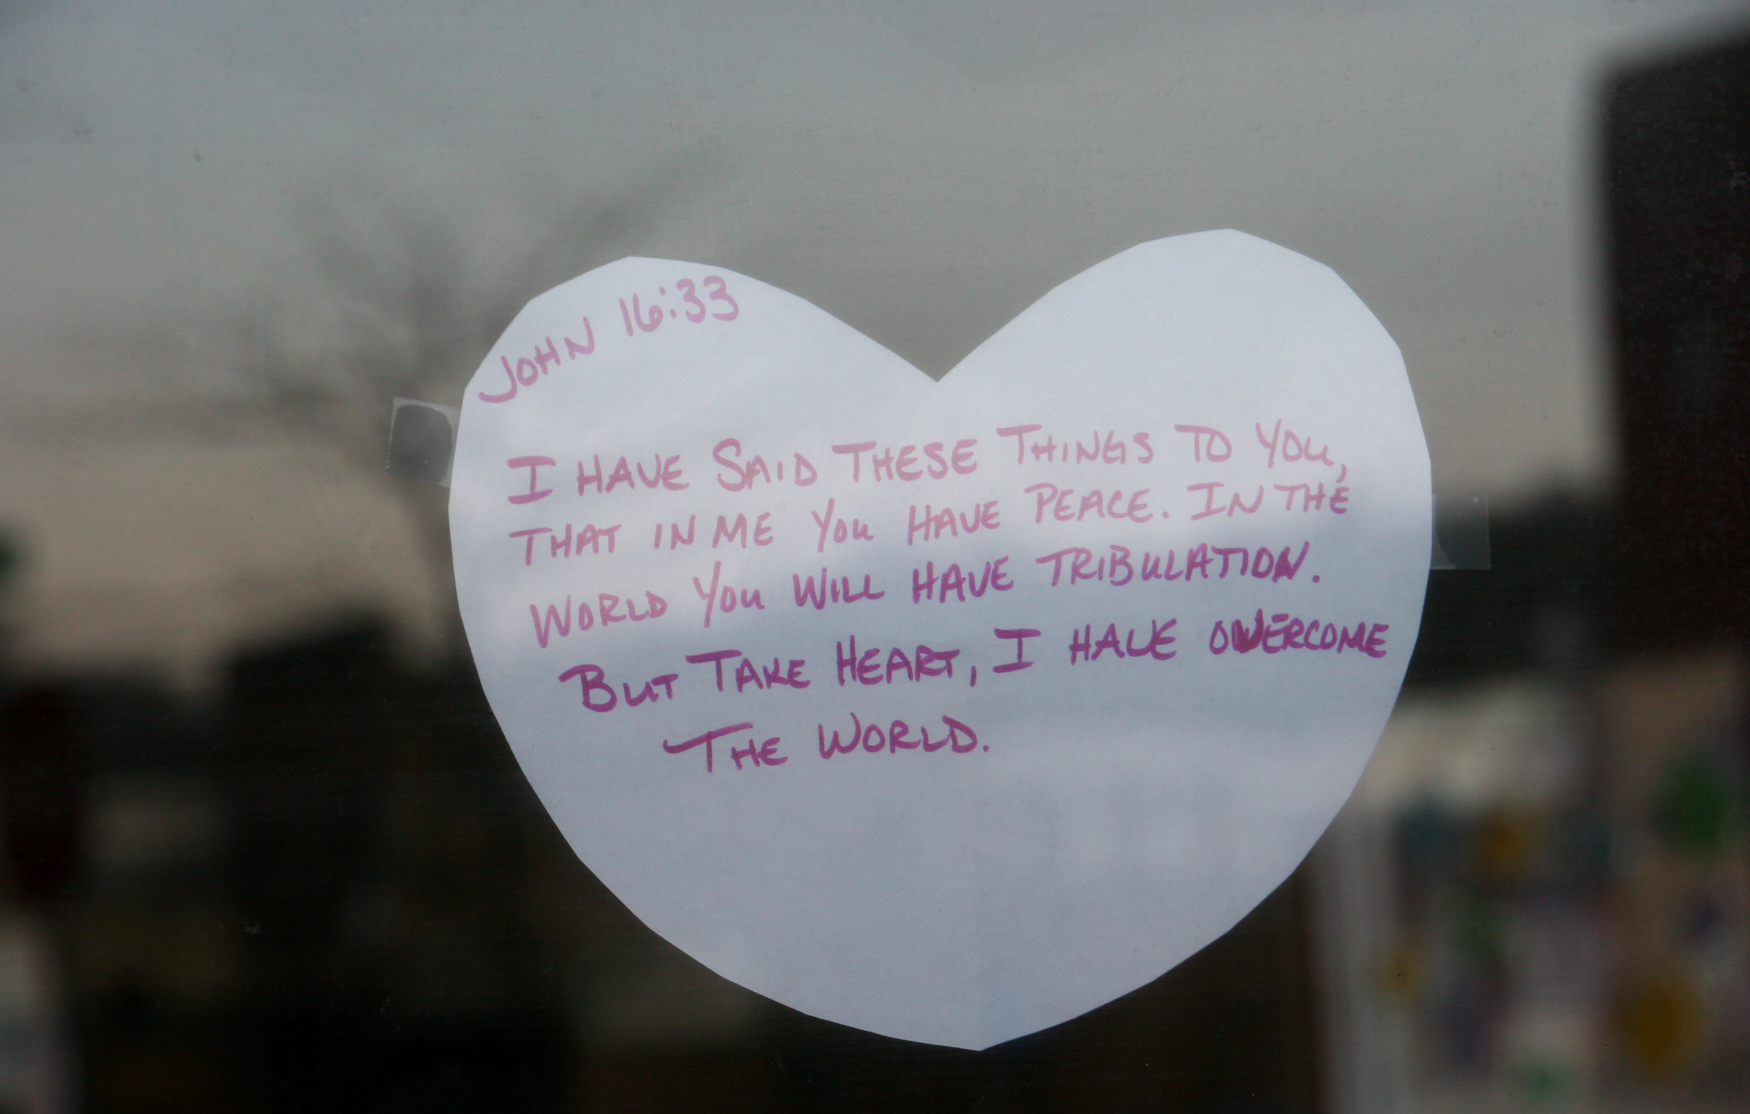 JOHN 16:33
I HAVE SAID THESE THINGS TO YOU,
THAT IN ME YOU HAVE PEACE. IN THE
WORLD YOU WILL HAVE TRIBULATION.
BUT TAKE HEART, I HAVE OVERCOME
THE WORLD.